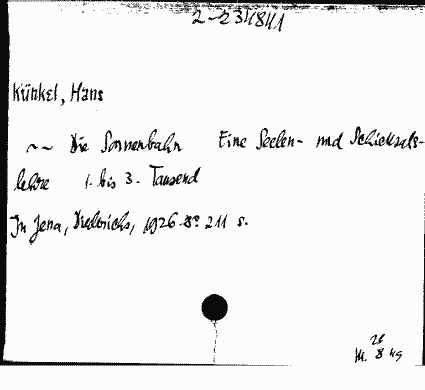 2-234841
Künkel, Hans
~~ Die Sonnenbahn Eine Seelen- und Schicksals-
lehre 1. bis 3. Tausend
In Jena, Diederichs, 1926. 8° 211 S.
26
8 49